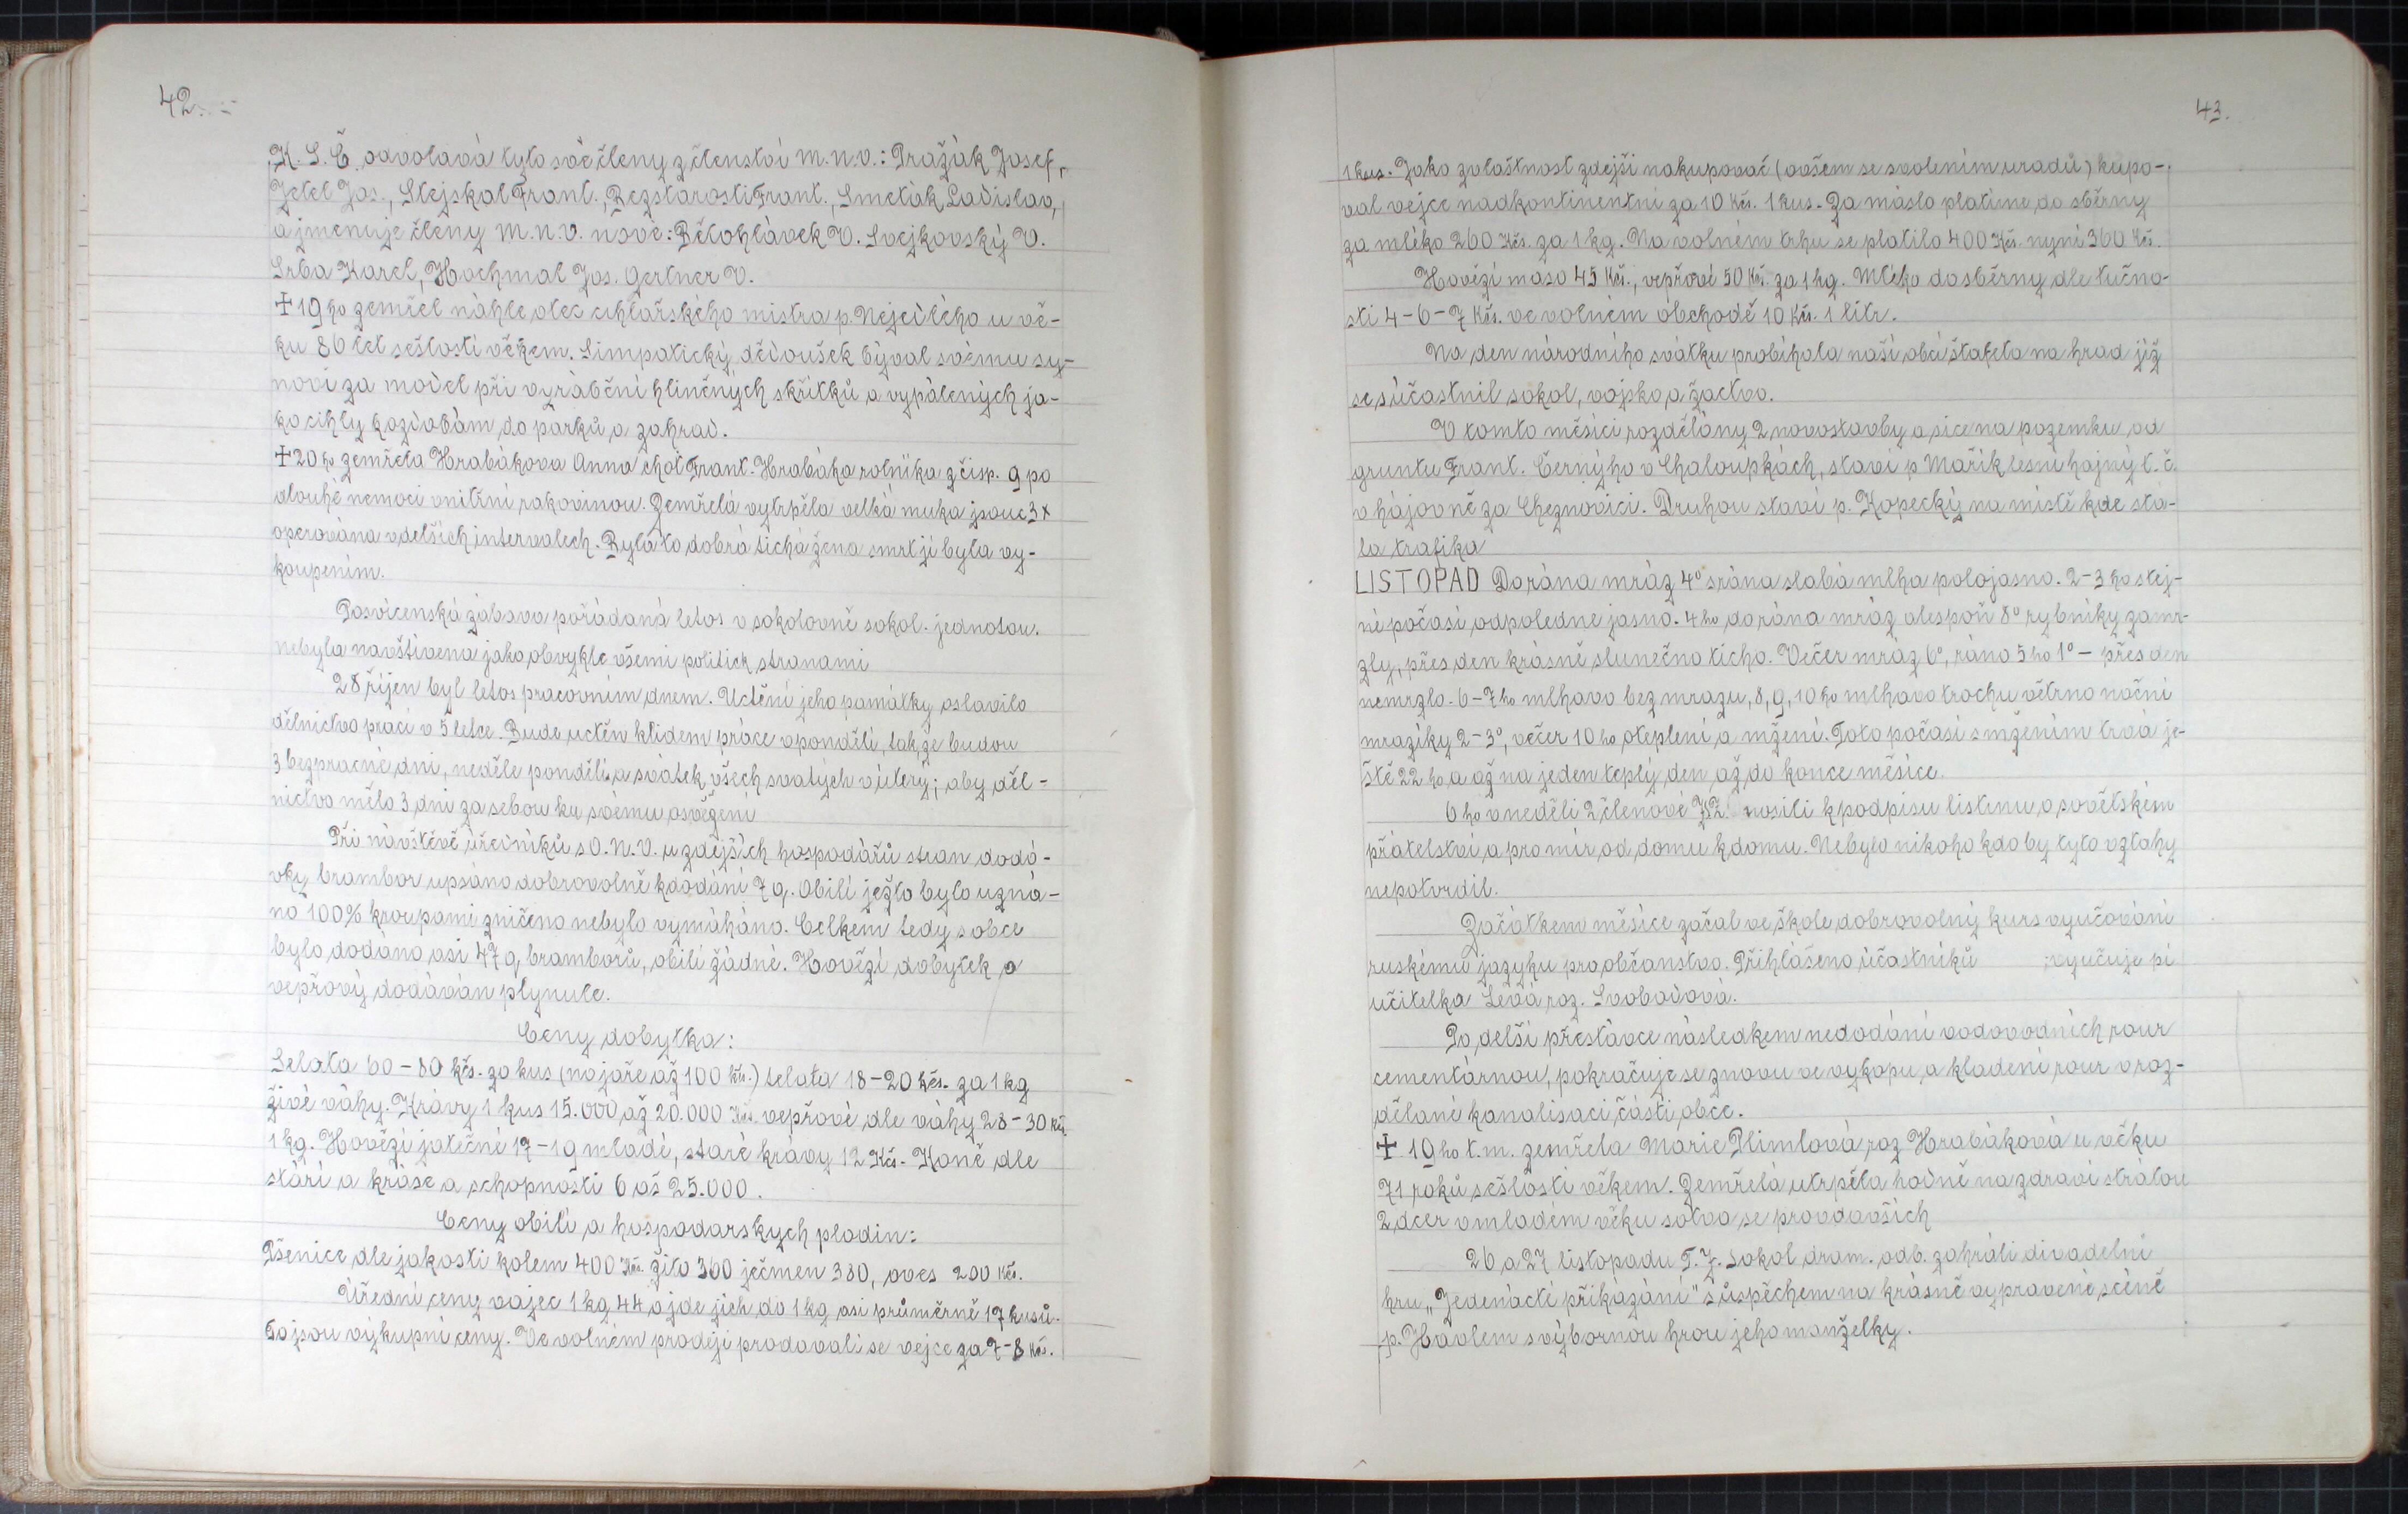 42.
K. S. Č. odvolává tyto své členy z členství M.N.V.: Pražák Josef,
Jetel Jos., Stejskal Frant., Bezstarosti Frant., Smeták Ladislav,
a jmenuje členy M.N.V. nové: Bělohlávek V. Svejkovský V.
Srba Karel, Hochmal Jos. Gertner V.
✝ 19 ho zemřel náhle otec cihlářského mistra p. Nejedlého u vě-
ku 80 let sešlosti věkem. Simpatický dědoušek býval svému sy-
novi za model při vyrábění hliněných skřítků a vypálených ja-
ko cihly k ozdobám do parků a zahrad.
✝ 20 ho zemřela Hrabákova Anna choť Frant. Hrabáka rolníka z čísp. 9 po
dlouhé nemoci vnitřní rakovinou. Zemřelá vytrpěla velká muka jsouc 3x
operována v delších intervalech. Byla to dobrá tichá žena smrt jí byla vy-
koupením.
Posvícenská zábava pořádaná letos v sokolovně sokol. jednotou.
nebyla navštívena jako obvykle všemi politick. stranami
28 říjen byl letos pracovním dnem. Uctění jeho památky oslavilo
dělnictvo prací v 5 letce. Bude uctěn klidem práce v ponděli, takže budou
3 bezpracné dni, neděle ponděli a svátek všech svatých v úterý; aby děl-
nictvo mělo 3 dni za sebou ku svému osvěžení
Při návštěvě úředníků s O.N.V. u zdejších hospodářů stran dodá-
vky brambor upsáno dobrovolně k dodání 7 q. Obilí ježto bylo uzná-
no 100% kroupami zničeno nebylo vymáháno. Celkem tedy s obce
bylo dodáno asi 47 q bramborů, obilí žádné. Hovězí dobytek a
vepřový dodáván plynule.
Ceny dobytka:
Selata 60-80 kčs. za kus (na jaře až 100 Kčs.) telata 18-20 kčs. za 1 kg
živé váhy. Krávy 1 kus 15.000 až 20.000 Kčs. vepřové dle váhy 28-30 Kčs
1 kg. Hovězí jatečné 17-19 mladé, staré krávy 12 Kčs. Koně dle
stáří a kráse a schopnosti 6 aš 25.000.
Ceny obilí a hospodarskych plodin:
Pšenice dle jakosti kolem 400 Kčs. žito 360 ječmen 380, oves 200 Kčs.
Úřední ceny vajec 1 kg 44 a jde jich do 1 kg asi průměrně 17 kusů.
To jsou výkupní ceny. Ve volném prodeji prodavali se vejce za 7-8 Kčs.
43.
1 kus. Jako zvlaštnost zdejší nakupovač (ovšem se svolením uradů) kupo-
val vejce nadkontinentní za 10 Kčs. 1 kus. Za máslo platíme do sběrny
za mlíko 260 Kčs. za 1 kg. Na volném trhu se platilo 400 Kčs. nyní 360 Kčs.
Hovězí maso 45 Kčs., vepřové 50 Kčs. za 1 kg. Mléko do sběrny dle tučno-
sti 4-6-7 Kčs. ve volném obchodě 10 Kčs. 1 litr.
Na den národního svátku probíhala naší obcí štafeta na hrad jíž
se súčastnil sokol, vojsko a žactvo.
V tomto měsíci rozdělány 2 novostavby a sice na pozemku od
gruntu Frant. Černýho v Chaloupkách, staví p Mařík lesní hajný t. č.
v hájovně za Cheznovici. Druhou staví p. Kopecký na místě kde stá-
la trafika
LISTOPAD Dorána mráz 4° srána slabá mlha polojasno. 2-3 ho stej-
né počasí odpoledne jasno. 4 ho dorána mráz alespoň 8° rybníky zamr-
zly, přes den krásně slunečno ticho. Večer mráz 6°, ráno 5 ho 1° - přes den
nemrzlo. 6-7 ho mlhavo bez mrazu, 8, 9, 10 ho mlhavo trochu větrno noční
mrazíky 2-3°, večer 10 ho oteplení a mžení. Toto počasí s mžením trvá je-
ště 22 ho a až na jeden teplý den až do konce měsíce.
6 ho v neděli 2 členové nosili k podpisu listinu o sovětském
přátelství a pro mír od domu k domu. Nebylo nikoho kdo by tyto vztahy
nepotvrdil.
Začátkem měsíce začal ve škole dobrovolný kurs vyučování
ruskému jazyku pro občanstvo. Přihlášeno účastníků ; vyučuje pí
učitelka Levá roz. Svobodová.
Po delší přestávce následkem nedodání vodovodních rour
cementárnou, pokračuje se znovu ve vykopu a kladení rour v roz-
dělané kanalisaci části obce.
✝ 19 ho t.m. zemřela Marie Plimlová roz Hrabáková u věku
71 roků sešlosti věkem. Zemřelá utrpěla hodně na zdraví strátou
2 dcer v mladém věku sotva se provdavších
26 a 27 listopadu T. J. Sokol dram. odb. zahráli divadelní
hru „Jedenácté přikázání" s úspěchem na krásně vypravené scéně
p. Havlem s výbornou hrou jeho manželky.